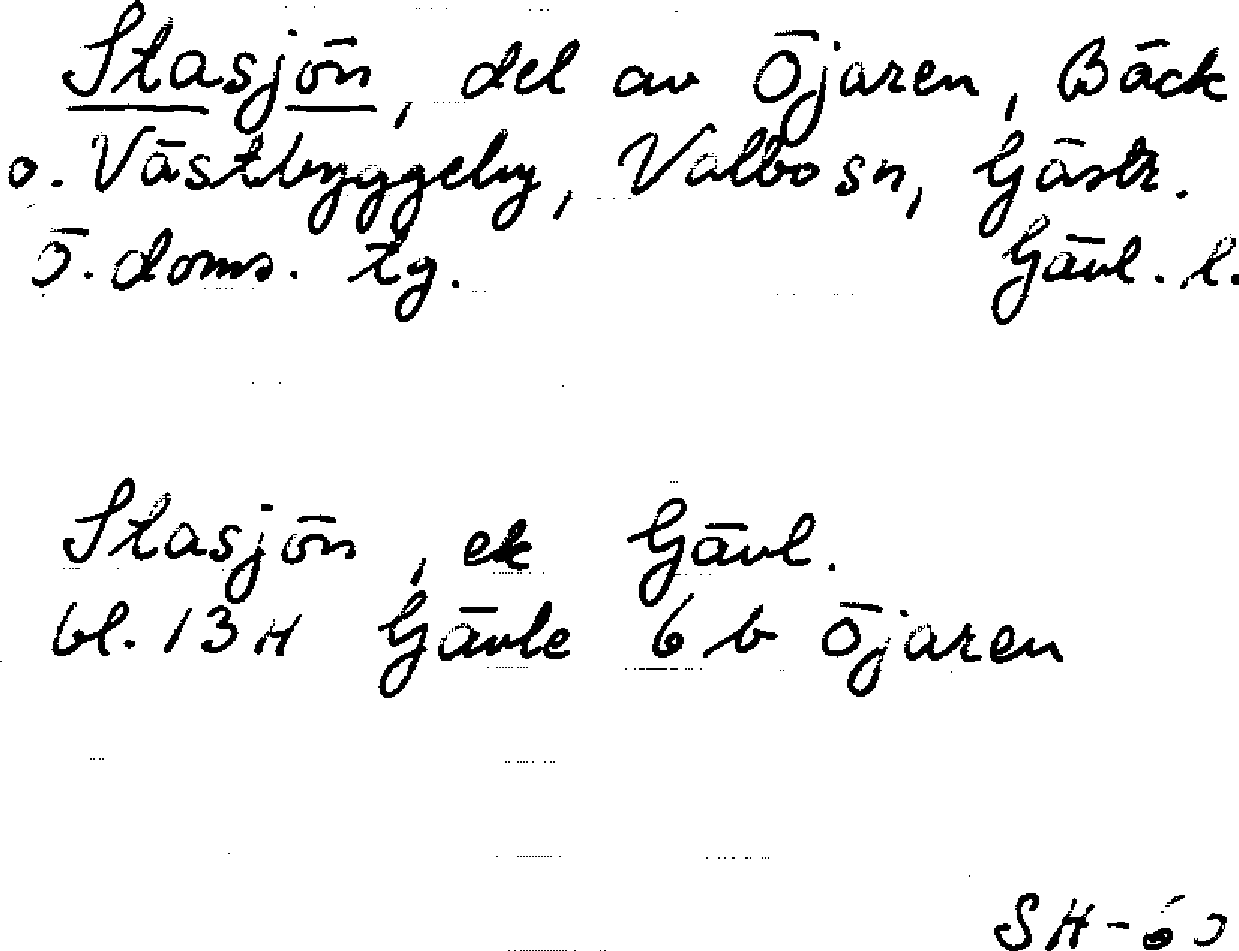 Stasjön, del av Öjaren, Bäck
o. Västbyggeby, Valbo sn, Gästr.
ö. doms. tg. Gävl. l.
Stasjön, ek Gävl.
bl. 13H Gävle 6 b Öjaren